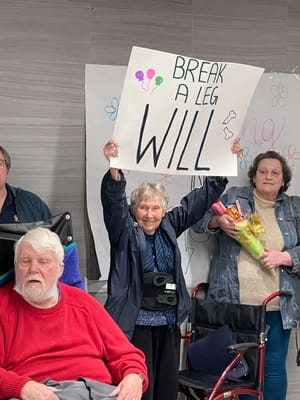 BREAK
A LEG
WILL